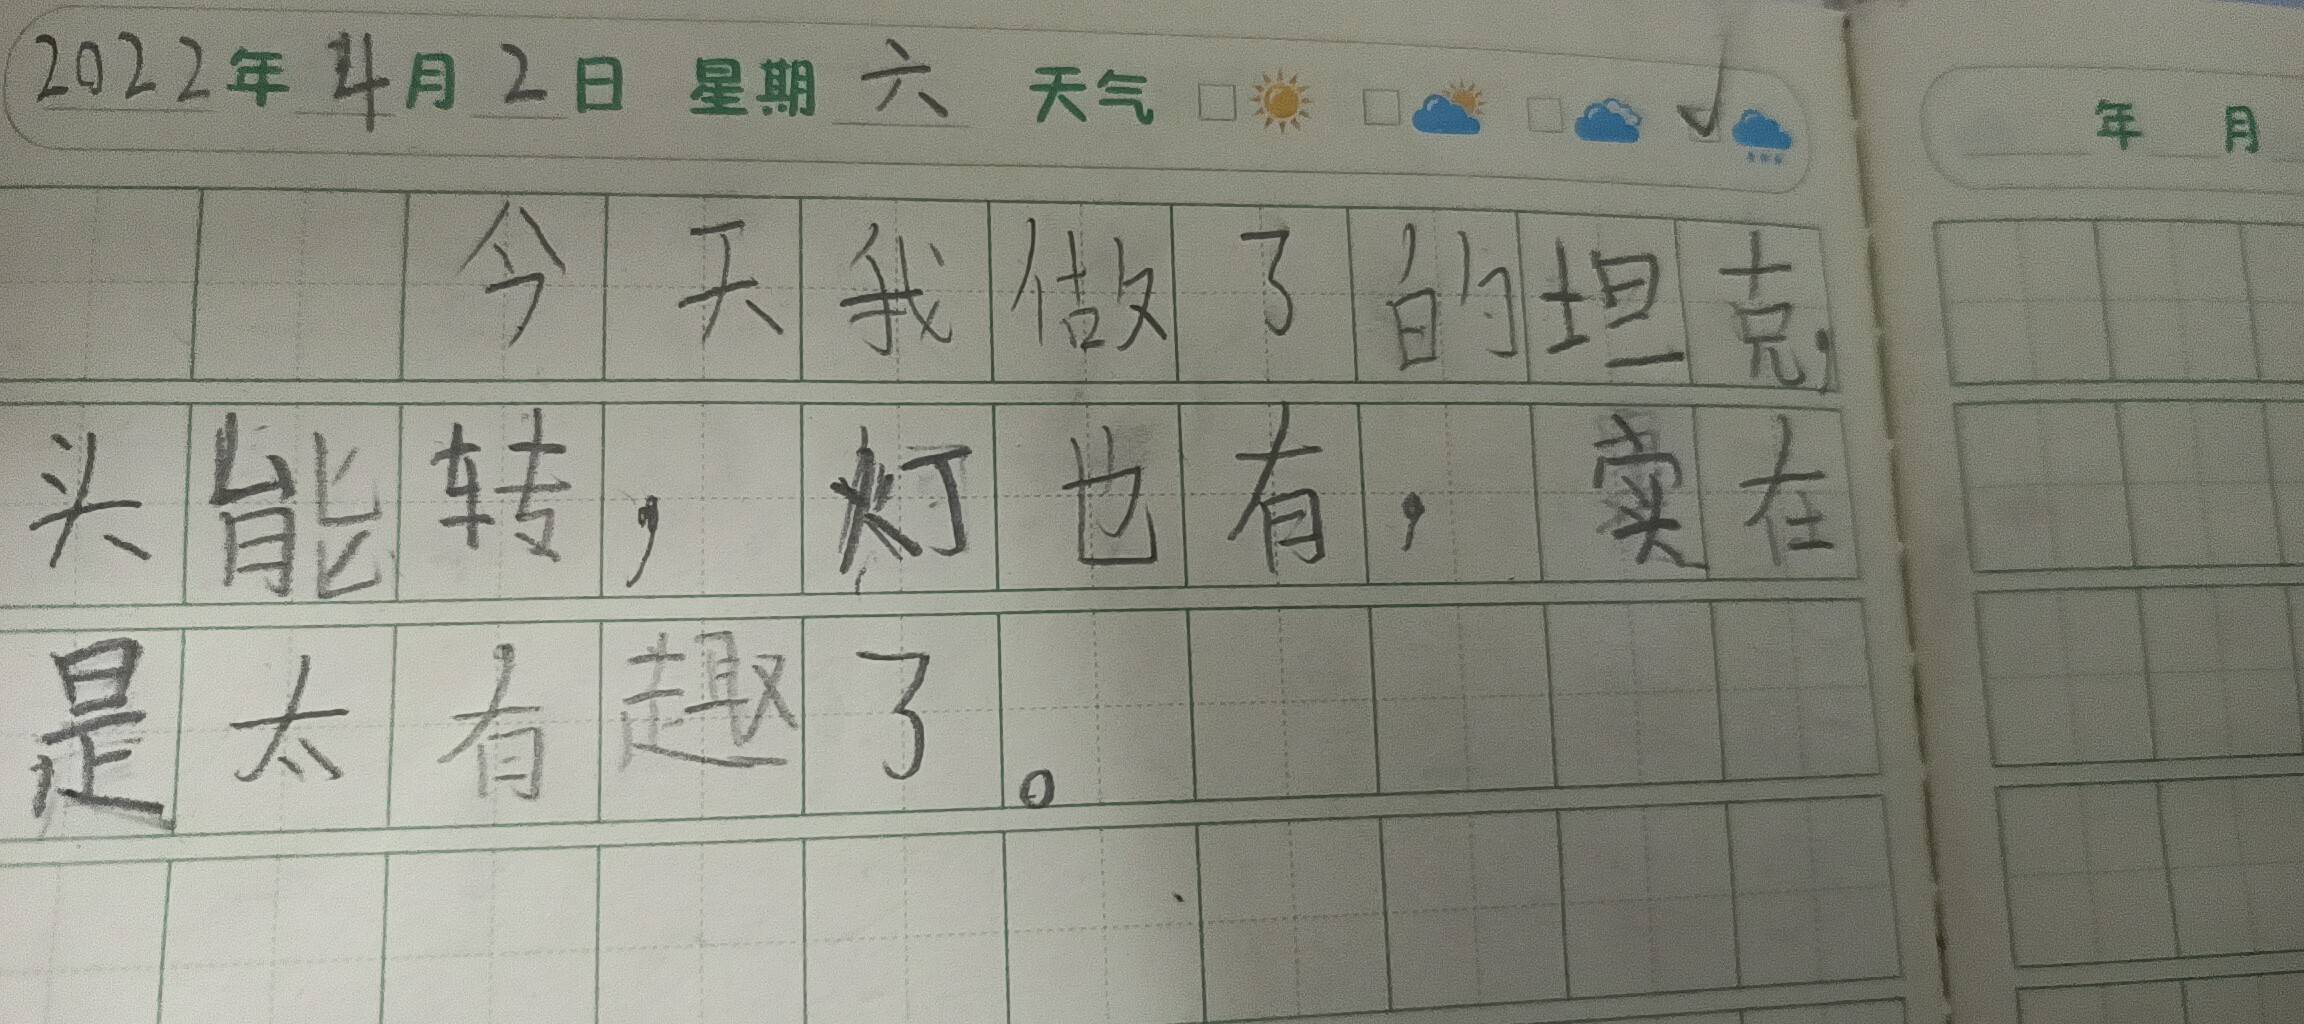 2022年4月2日 星期六 天气
年 月
今天我做了的坦克,
头能转,灯也有,实在
是太有趣了。